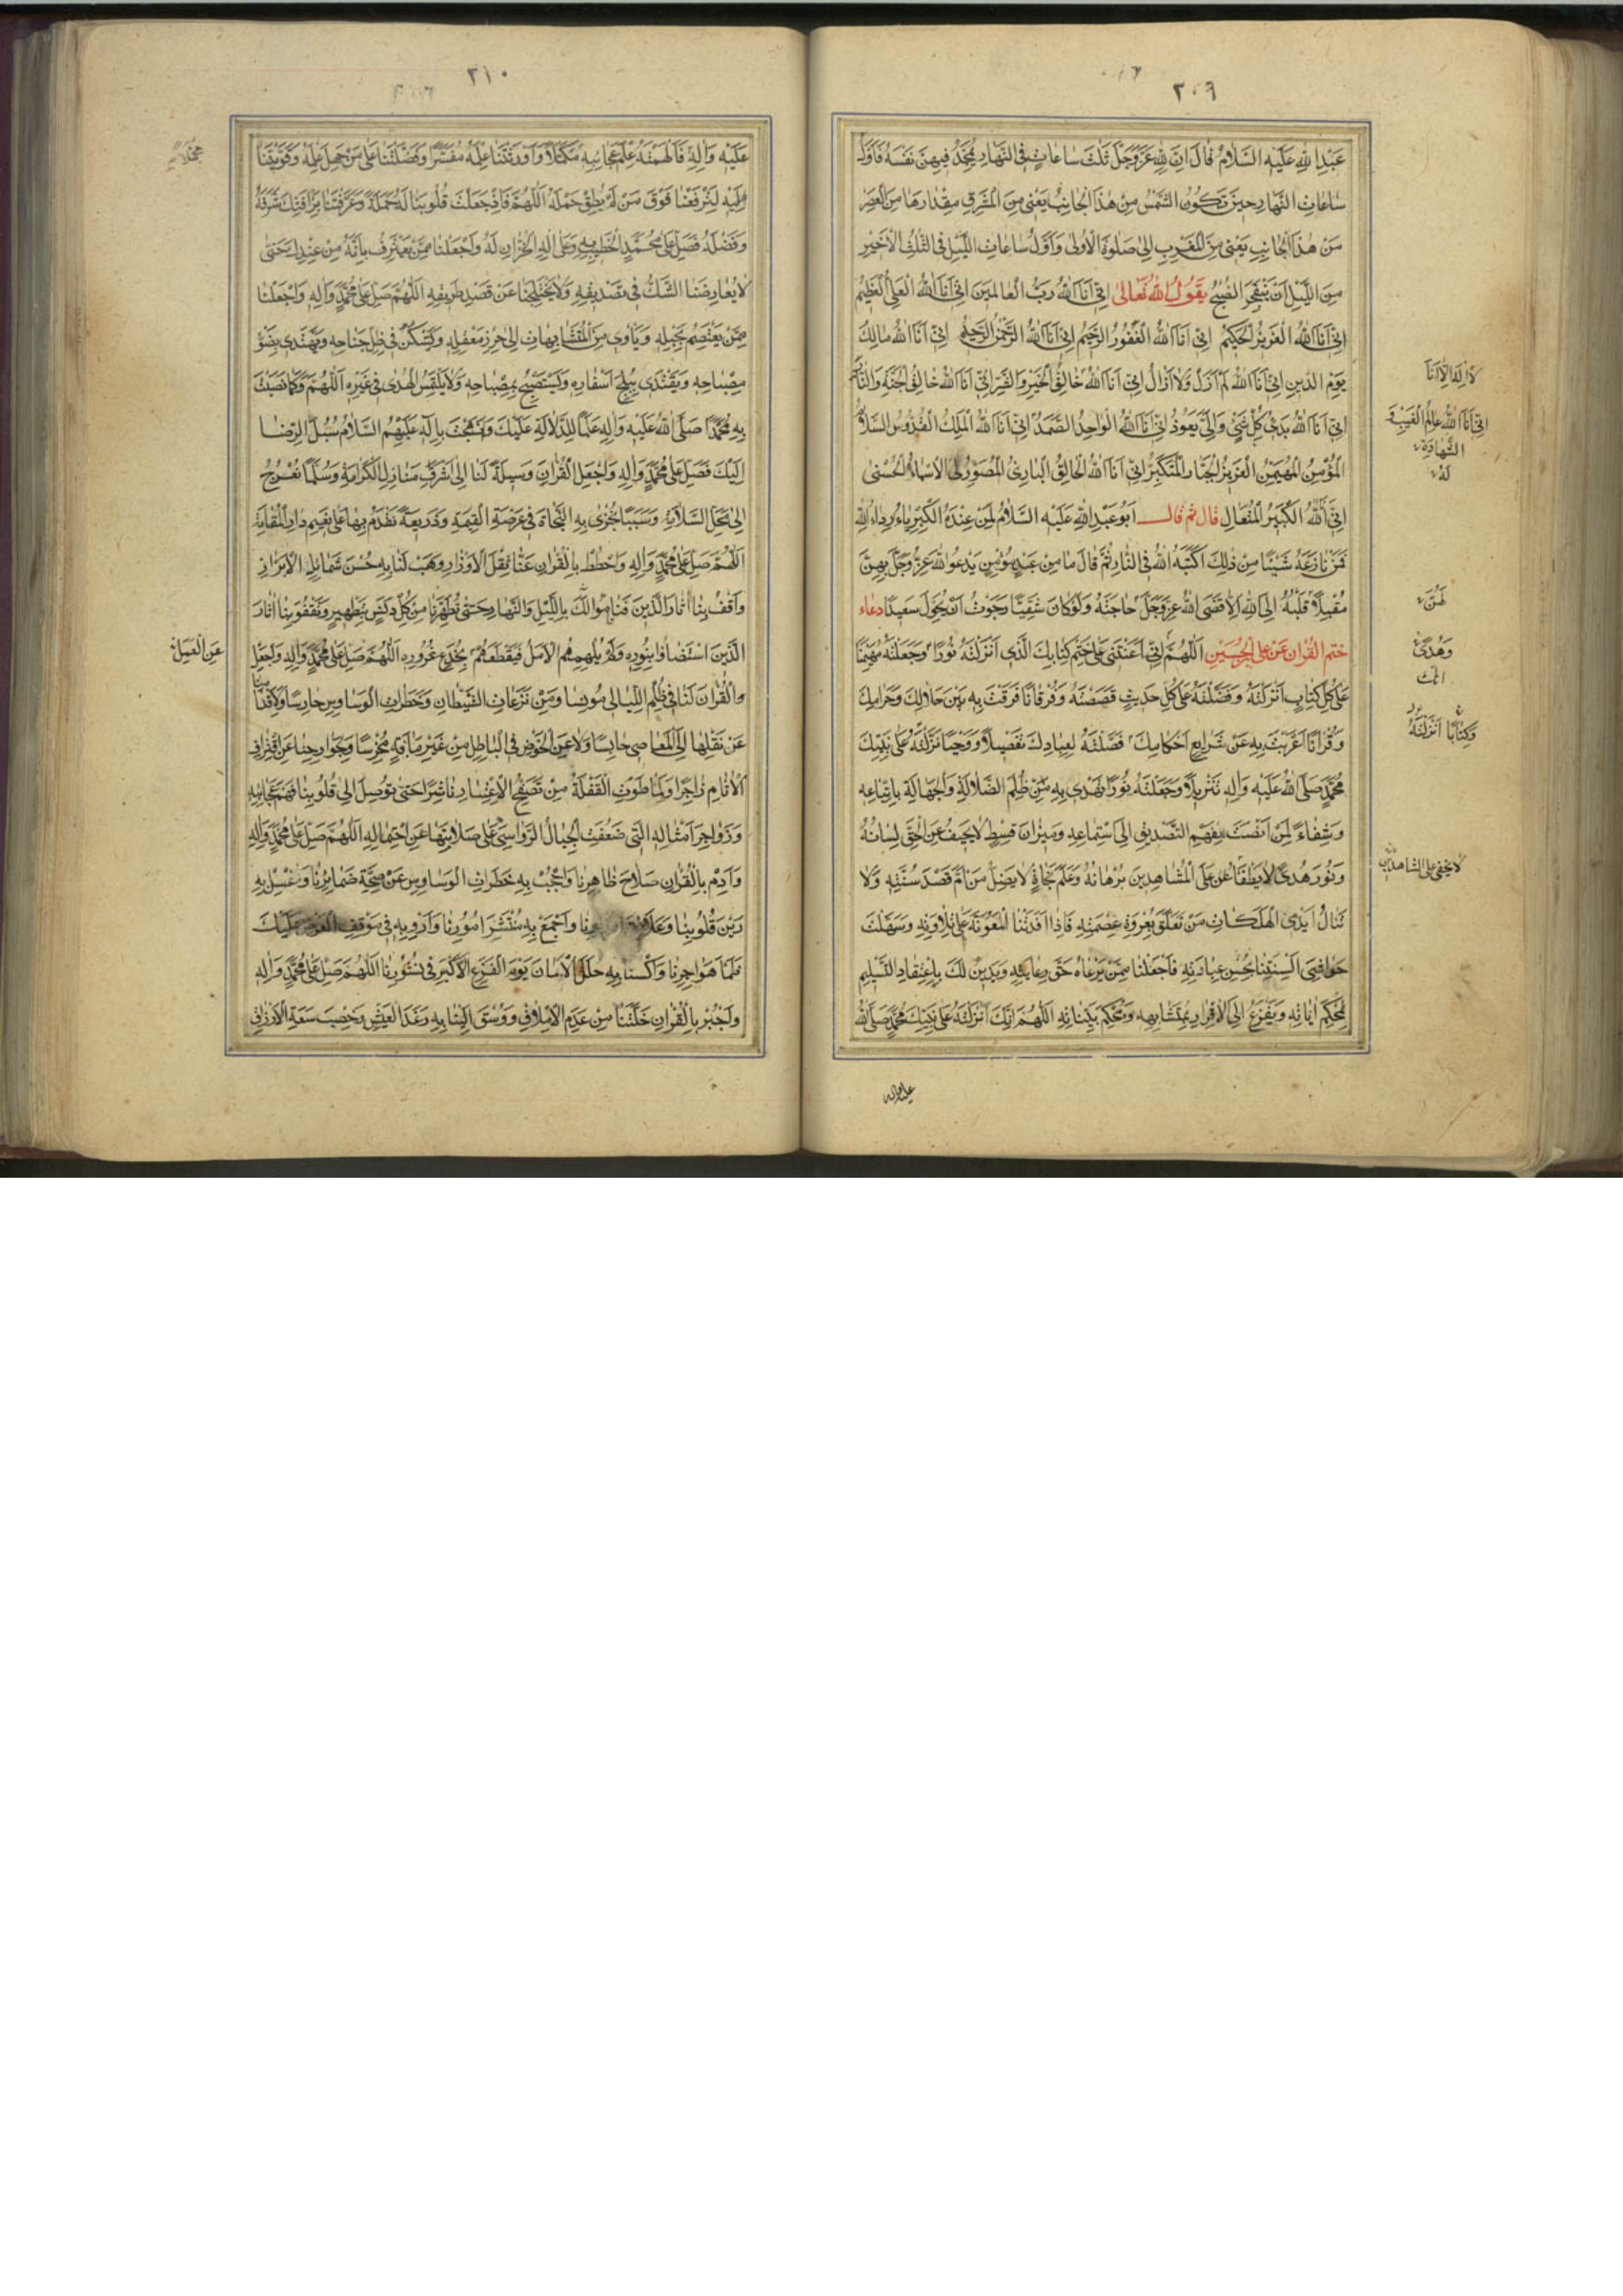 ٣٠٩
عَبْدِ اللهِ عَلَيْهِ السَّلَامُ قَالَ اِنَّ لِلّٰهِ عَزَّوَجَلَّ ثَلٰثَ سَاعَاتٍ فِى النَّهَارِ يُمَجِّدُ فِيهِنَّ نَفْسَهُ فَاَوَّلُ
سَاعَاتِ النَّهَارِ حِينَ تَكُونُ الشَّمْسُ مِنْ هٰذَا الْجَانِبِ يَعْنِى مِنَ الْمَشْرِقِ مِقْدَارَهَا مِنَ الْعَصْرِ
مِنْ هٰذَا الْجَانِبِ يَعْنِى مِنَ الْمَغْرِبِ اِلىٰ صَلٰوةِ الْاُولىٰ وَاَوَّلُ سَاعَاتِ اللَّيْلِ فِى الثُّلُثِ الْاَخِيْرِ
مِنَ اللَّيْلِ اَنْ يَنْفَجِرَ الصُّبْحُ يَقُولُ اللهُ تَعَالىٰ اِنِّى اَنَا اللهُ رَبُّ الْعَالَمِينَ اِنِّى اَنَا اللهُ الْعَلِىُّ الْعَظِيمُ
اِنِّى اَنَا اللهُ الْعَزِيزُ الْحَكِيمُ اِنِّى اَنَا اللهُ الْغَفُورُ الرَّحِيمُ اِنِّى اَنَا اللهُ الرَّحْمٰنُ الرَّحِيمُ اِنِّى اَنَا اللهُ مَالِكُ
يَوْمِ الدِّينِ اِنِّى اَنَا اللهُ لَمْ اَزَلْ وَلَا اَزَالُ اِنِّى اَنَا اللهُ خَالِقُ الْخَيْرِ وَالشَّرِّ اِنِّى اَنَا اللهُ خَالِقُ الْجَنَّةِ وَالنَّارِ
اِنِّى اَنَا اللهُ بَدِئُ كُلِّ شَىْءٍ وَاِلَىَّ يَعُودُ اِنِّى اَنَا اللهُ الْوَاحِدُ الصَّمَدُ اِنِّى اَنَا اللهُ الْمَلِكُ الْقُدُّوسُ السَّلَامُ
الْمُؤْمِنُ الْمُهَيْمِنُ الْعَزِيزُ الْجَبَّارُ الْمُتَكَبِّرُ اِنِّى اَنَا اللهُ الْخَالِقُ الْبَارِئُ الْمُصَوِّرُ لِى الْاَسْمَاءُ الْحُسْنىٰ
اِنِّى اَنَا اللهُ الْكَبِيرُ الْمُتَعَالِ قَالَ ثم قال اَبُو عَبْدِ اللهِ عَلَيْهِ السَّلَامُ لِمَنْ عِنْدَهُ الْكِبْرِيَاءُ رِدَاءُ اللهِ
فَمَنْ نَازَعَهُ شَيْئًا مِنْ ذٰلِكَ اَكَبَّهُ اللهُ فِى النَّارِ ثُمَّ قَالَ مَا مِنْ عَبْدٍ مُؤْمِنٍ يَدْعُو اللهَ عَزَّوَجَلَّ بِهِنَّ
مُقْبِلًا قَلْبُهُ اِلَى اللهِ اِلَّا قَضَى اللهُ عَزَّوَجَلَّ حَاجَتَهُ وَلَوْ كَانَ شَقِيًّا رَجَوْتُ اَنْ يُحَوَّلَ سَعِيدًا دعاء
ختم القران عن على بن الحسين اَللّٰهُمَّ اِنَّكَ اَعَنْتَنِى عَلىٰ خَتْمِ كِتَابِكَ الَّذِى اَنْزَلْتَهُ نُورًا وَجَعَلْتَهُ مُهَيْمِنًا
عَلىٰ كُلِّ كِتَابٍ اَنْزَلْتَهُ وَفَضَّلْتَهُ عَلىٰ كُلِّ حَدِيثٍ قَصَصْتَهُ وَفُرْقَانًا فَرَقْتَ بِهِ بَيْنَ حَلَالِكَ وَحَرَامِكَ
وَقُرْاٰنًا اَعْرَبْتَ بِهِ عَنْ شَرَائِعِ اَحْكَامِكَ فَصَّلْتَهُ لِعِبَادِكَ تَفْصِيلًا وَوَحْيًا نَزَّلْتَهُ عَلىٰ نَبِيِّكَ
مُحَمَّدٍ صَلَّى اللهُ عَلَيْهِ وَاٰلِهِ تَنْزِيلًا وَجَعَلْتَهُ نُورًا نَهْتَدِى بِهِ مِنْ ظُلَمِ الضَّلَالَةِ وَالْجَهَالَةِ بِاتِّبَاعِهِ
وَشِفَاءً لِمَنْ اَنْصَتَ بِفَهْمِ التَّصْدِيقِ اِلَى اسْتِمَاعِهِ وَمِيزَانَ قِسْطٍ لَا يَحِيفُ عَنِ الْحَقِّ لِسَانُهُ
وَنُورَ هُدًى لَا يَطْفَأُ عَنْ عَلَى الْمُشَاهِدِينَ بُرْهَانُهُ وَعَلَمَ نَجَاةٍ لَا يَضِلُّ مَنْ اَمَّ قَصْدَ سُنَّتِهِ وَلَا
تَنَالُ اَيْدِى الْهَلَكَاتِ مَنْ تَعَلَّقَ بِعُرْوَةِ عِصْمَتِهِ فَاِذَا اَفَدْتَنَا الْمَعُونَةَ عَلىٰ تِلَاوَتِهِ وَسَهَّلْتَ
حَوَاشِىَ اَلْسِنَتِنَا بِحُسْنِ عِبَادَتِهِ فَاجْعَلْنَا مِمَّنْ يَرْعَاهُ حَقَّ رِعَايَتِهِ وَيَدِينُ لَكَ بِاعْتِقَادِ التَّسْلِيمِ
لِمُحْكَمِ اٰيَاتِهِ وَيَفْزَعُ اِلَى الْاِقْرَارِ بِمُتَشَابِهِهِ وَمُحْكَمِ بَيِّنَاتِهِ اَللّٰهُمَّ اِنَّكَ اَنْزَلْتَهُ عَلىٰ نَبِيِّكَ مُحَمَّدٍ صَلَّى اللهُ
عليه واله
لَا اِلٰهَ اِلَّا اَنَا
اِنِّى اَنَا اللهُ عَالِمُ الْغَيْبِ وَ
الشَّهَادَةِ
لَهُ
لَهُنَّ
وَهُدًى
انك
وَكِتَابًا اَنْزَلْتَهُ
لَا يخفى على الشاهدين
٣١٠
عَلَيْهِ وَاٰلِهِ فَاَلْهَمْتَهُ عِلْمَ عَجَائِبِهِ مُكَمَّلًا وَاَوْرَثْتَنَا عِلْمَهُ مُفَسَّرًا وَفَضَّلْتَنَا عَلىٰ مَنْ جَهِلَ عِلْمَهُ وَقَوَّيْتَنَا
عَلَيْهِ لِتَرْفَعَنَا فَوْقَ مَنْ لَمْ يُطِقْ حَمْلَهُ اَللّٰهُمَّ فَاِذْ جَعَلْتَ قُلُوبَنَا لَهُ حَمَلَةً وَعَرَّفْتَنَا بِرَأْفَتِكَ شَرَفَهُ
وَفَضْلَهُ فَصَلِّ عَلىٰ مُحَمَّدٍ الْخَطِيبِ بِهِ وَعَلىٰ اٰلِهِ الْخُزَّانِ لَهُ وَاجْعَلْنَا مِمَّنْ يَعْتَرِفُ بِاَنَّهُ مِنْ عِنْدِكَ حَتّىٰ
لَا يُعَارِضَنَا الشَّكُّ فِى تَصْدِيقِهِ وَلَا يَخْتَلِجَنَا عَنْ قَصْدِ طَرِيقِهِ اَللّٰهُمَّ صَلِّ عَلىٰ مُحَمَّدٍ وَاٰلِهِ وَاجْعَلْنَا
مِمَّنْ يَعْتَصِمُ بِحَبْلِهِ وَيَأْوِى مِنَ الْمُتَشَابِهَاتِ اِلىٰ حِرْزِ مَعْقِلِهِ وَيَسْكُنُ فِى ظِلِّ جَنَاحِهِ وَيَهْتَدِى بِضَوْءِ
مِصْبَاحِهِ وَيَقْتَدِى بِتَبَلُّجِ اَسْفَارِهِ وَيَسْتَصْبِحُ بِمِصْبَاحِهِ وَلَا يَلْتَمِسُ الْهُدىٰ فِى غَيْرِهِ اَللّٰهُمَّ وَكَمَا نَصَبْتَ
بِهِ مُحَمَّدًا صَلَّى اللهُ عَلَيْهِ وَاٰلِهِ عَلَمًا لِلدَّلَالَةِ عَلَيْكَ وَاَنْهَجْتَ بِاٰلِهِ عَلَيْهِمُ السَّلَامُ سُبُلَ الرِّضَا
اِلَيْكَ فَصَلِّ عَلىٰ مُحَمَّدٍ وَاٰلِهِ وَاجْعَلِ الْقُرْاٰنَ وَسِيلَةً لَنَا اِلىٰ اَشْرَفِ مَنَازِلِ الْكَرَامَةِ وَسُلَّمًا نَعْرُجُ
اِلىٰ مَحَلِّ السَّلَامَةِ وَسَبَبًا نُجْزىٰ بِهِ النَّجَاةَ فِى عَرْصَةِ الْقِيٰمَةِ وَذَرِيعَةً نَقْدَمُ بِهَا عَلىٰ نَعِيمِ دَارِ الْمُقَامَةِ
اَللّٰهُمَّ صَلِّ عَلىٰ مُحَمَّدٍ وَاٰلِهِ وَاحْطُطْ بِالْقُرْاٰنِ عَنَّا ثِقْلَ الْاَوْزَارِ وَهَبْ لَنَا بِهِ حُسْنَ شَمَائِلِ الْاَبْرَارِ
وَاقْفُ بِنَا اٰثَارَ الَّذِينَ قَامُوا لَكَ بِاللَّيْلِ وَالنَّهَارِ حَتّىٰ تُطَهِّرَنَا مِنْ كُلِّ دَنَسٍ بِتَطْهِيرِهِ وَتَقْفُوَ بِنَا اٰثَارَ
الَّذِينَ اسْتَضَاؤُا بِنُورِهِ وَلَمْ يُلْهِهِمُ الْاَمَلُ فَيَقْطَعَهُمْ بِخُدَعِ غُرُورِهِ اَللّٰهُمَّ صَلِّ عَلىٰ مُحَمَّدٍ وَاٰلِهِ وَاجْعَلِ
الْقُرْاٰنَ لَنَا فِى ظُلَمِ اللَّيَالِى مُونِسًا وَمِنْ نَزَغَاتِ الشَّيْطَانِ وَخَطَرَاتِ الْوَسَاوِسِ حَارِسًا وَلِاَقْدَامِنَا
عَنْ نَقْلِهَا اِلَى الْمَعَاصِى حَابِسًا وَلِاَلْسِنَتِنَا عَنِ الْخَوْضِ فِى الْبَاطِلِ مِنْ غَيْرِ مَا اٰفَةٍ مُخْرِسًا وَلِجَوَارِحِنَا عَنِ اقْتِرَافِ
الْاٰثَامِ زَاجِرًا وَلِمَا طَوَتِ الْغَفْلَةُ مِنْ تَصَفُّحِ الْاِعْتِبَارِ نَاشِرًا حَتّىٰ تُوصِلَ اِلىٰ قُلُوبِنَا فَهْمَ عَجَائِبِهِ
وَزَوَاجِرَ اَمْثَالِهِ الَّتِى ضَعُفَتِ الْجِبَالُ الرَّوَاسِى عَلىٰ صَلَابَتِهَا عَنِ احْتِمَالِهِ اَللّٰهُمَّ صَلِّ عَلىٰ مُحَمَّدٍ وَاٰلِهِ
وَاَدِمْ بِالْقُرْاٰنِ صَلَاحَ ظَاهِرِنَا وَاحْجُبْ بِهِ خَطَرَاتِ الْوَسَاوِسِ عَنْ صِحَّةِ ضَمَائِرِنَا وَاغْسِلْ بِهِ
رَيْنَ قُلُوبِنَا وَاجْمَعْ بِهِ مُنْتَشَرَ اُمُورِنَا وَاَرْوِ بِهِ فِى مَوْقِفِ الْعَرْضِ عَلَيْكَ
ظَمَأَ هَوَاجِرِنَا وَاكْسُنَا بِهِ حُلَلَ الْاَمَانِ يَوْمَ الْفَزَعِ الْاَكْبَرِ فِى نُشُورِنَا اَللّٰهُمَّ صَلِّ عَلىٰ مُحَمَّدٍ وَاٰلِهِ
وَاجْبُرْ بِالْقُرْاٰنِ خَلَّتَنَا مِنْ عَدَمِ الْاِمْلَاقِ وَسُقْ اِلَيْنَا بِهِ رَغَدَ الْعَيْشِ وَخِصْبَ سَعَةِ الْاَرْزَاقِ